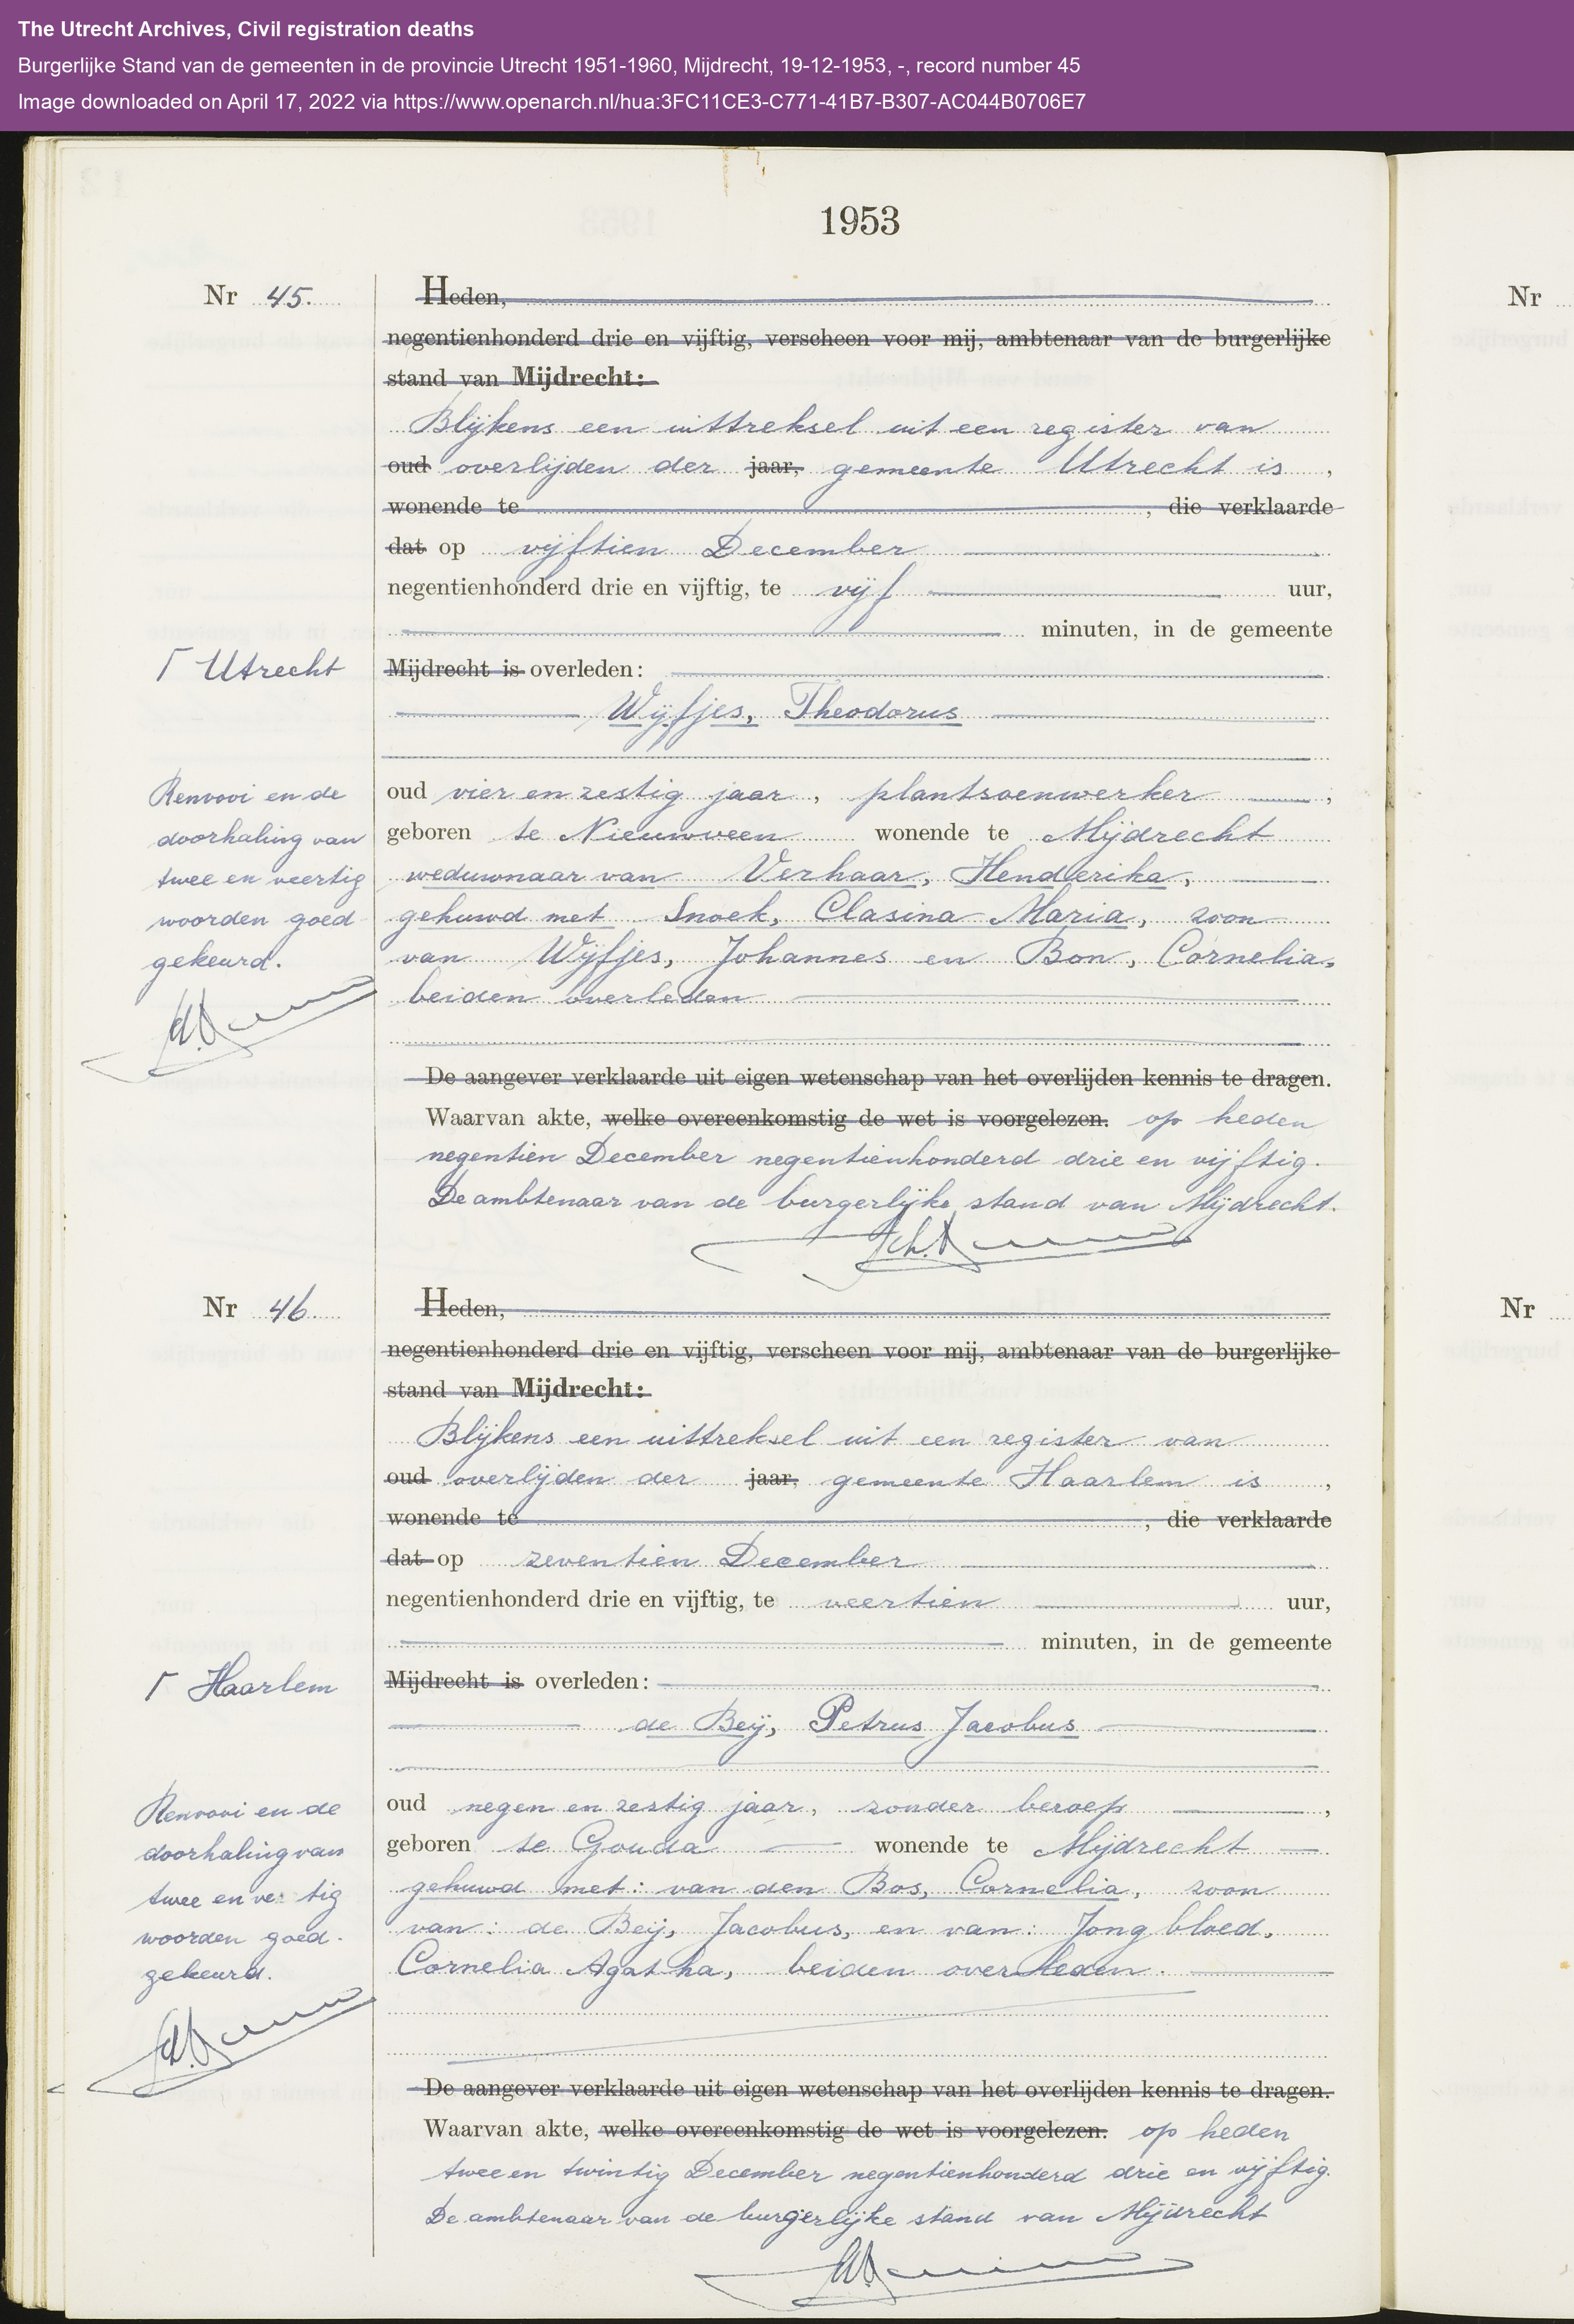 The Utrecht Archives, Civil registration deaths
Burgerlijke Stand van de gemeenten in de provincie Utrecht 1951-1960, Mijdrecht, 19-12-1953, -, record number 45
Image downloaded on April 17, 2022 via https://www.openarch.nl/hua:3FC11CE3-C771-41B7-B307-AC044B0706E7
1953
Nr 45.
Heden,
negentienhonderd drie en vijftig, verscheen voor mij, ambtenaar van de burgerlijke
stand van Mijdrecht:
Blijkens een uittreksel uit een register van
oud overlijden der jaar, gemeente Utrecht is,
wonende te , die verklaarde
dat op vijftien December
negentienhonderd drie en vijftig, te vijf uur,
minuten, in de gemeente
Γ Utrecht
Mijdrecht is overleden:
Wijfjes, Theodorus
Renvooi en de
doorhaling van
twee en veertig
woorden goed
gekeurd.
oud vier en zestig jaar, plantsoenwerker,
geboren te Nieuwveen wonende te Mijdrecht
weduwnaar van Verhaar, Henderika,
gehuwd met Snoek, Clasina Maria, zoon
van Wijfjes, Johannes en Bon, Cornelia,
beiden overleden
De aangever verklaarde uit eigen wetenschap van het overlijden kennis te dragen.
Waarvan akte, welke overeenkomstig de wet is voorgelezen. op heden
negentien December negentienhonderd drie en vijftig.
De ambtenaar van de burgerlijke stand van Mijdrecht.
Nr 46
Heden,
negentienhonderd drie en vijftig, verscheen voor mij, ambtenaar van de burgerlijke
stand van Mijdrecht:
Blijkens een uittreksel uit een register van
oud overlijden der jaar, gemeente Haarlem is,
wonende te , die verklaarde
dat op zeventien December
negentienhonderd drie en vijftig, te veertien uur,
minuten, in de gemeente
Γ Haarlem
Mijdrecht is overleden:
de Beij, Petrus Jacobus
Renvooi en de
doorhaling van
twee en ve tig
woorden goed-
gekeurd.
oud negen en zestig jaar, zonder beroep,
geboren te Gouda wonende te Mijdrecht
gehuwd met: van den Bos, Cornelia, zoon
van: de Beij, Jacobus, en van: Jongbloed,
Cornelia Agatha, beiden overleden.
De aangever verklaarde uit eigen wetenschap van het overlijden kennis te dragen.
Waarvan akte, welke overeenkomstig de wet is voorgelezen. op heden
twee en twintig December negentienhonderd drie en vijftig.
De ambtenaar van de burgerlijke stand van Mijdrecht
Nr
Nr